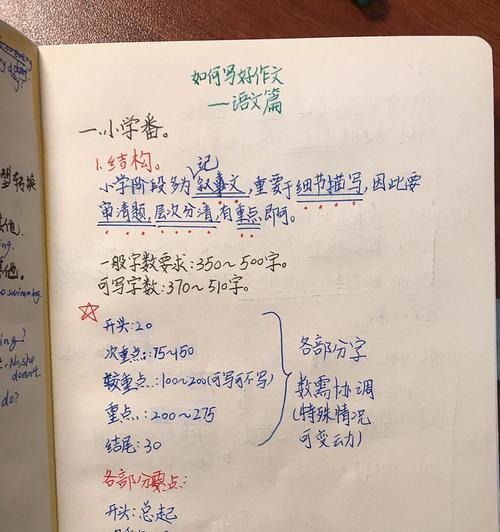 如何写好作文
—语文篇
一.小学番。
1.结构。
记
小学阶段多为叙事文,重要于细节描写,因此要
审清题,层次分清,有重点即可。
一般字数要求:350~500字。
可写字数:370~510字。
☆
开头:20
次重点:75~150
较重点:100~200(可写可不写)
重点:200~275
结尾:30
各部分字
数需协调
(特殊情况
可变动)
各部分要点:
开头:总起
型转换
swimming.
ing?
No, she
doesn't.
do?